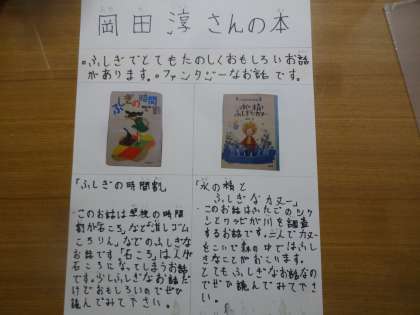 岡田淳さんの本
・ふしぎでとてもたのしくおもしろいお話
があります。・ファンタジーなお話です。
ふしぎの時間割
「ふしぎの時間割」
このお話は学校の時間
割が石ころ」など「消しゴム
ころりん」などのふしぎな
お話です「石ころ」は人が
石ころになってしまうお話
です。少しふしぎなお話だ
けでおもしろいのでぜひ
読んでみて下さい。
ふしぎなカヌー」
このお話はふたごのシク
が川を調査
するお話です。二人でカヌー
をこいで森の中ではふし
ぎなことがおこります。
とてもふしぎなお話なの
でぜひ読んでみて下さ
い。